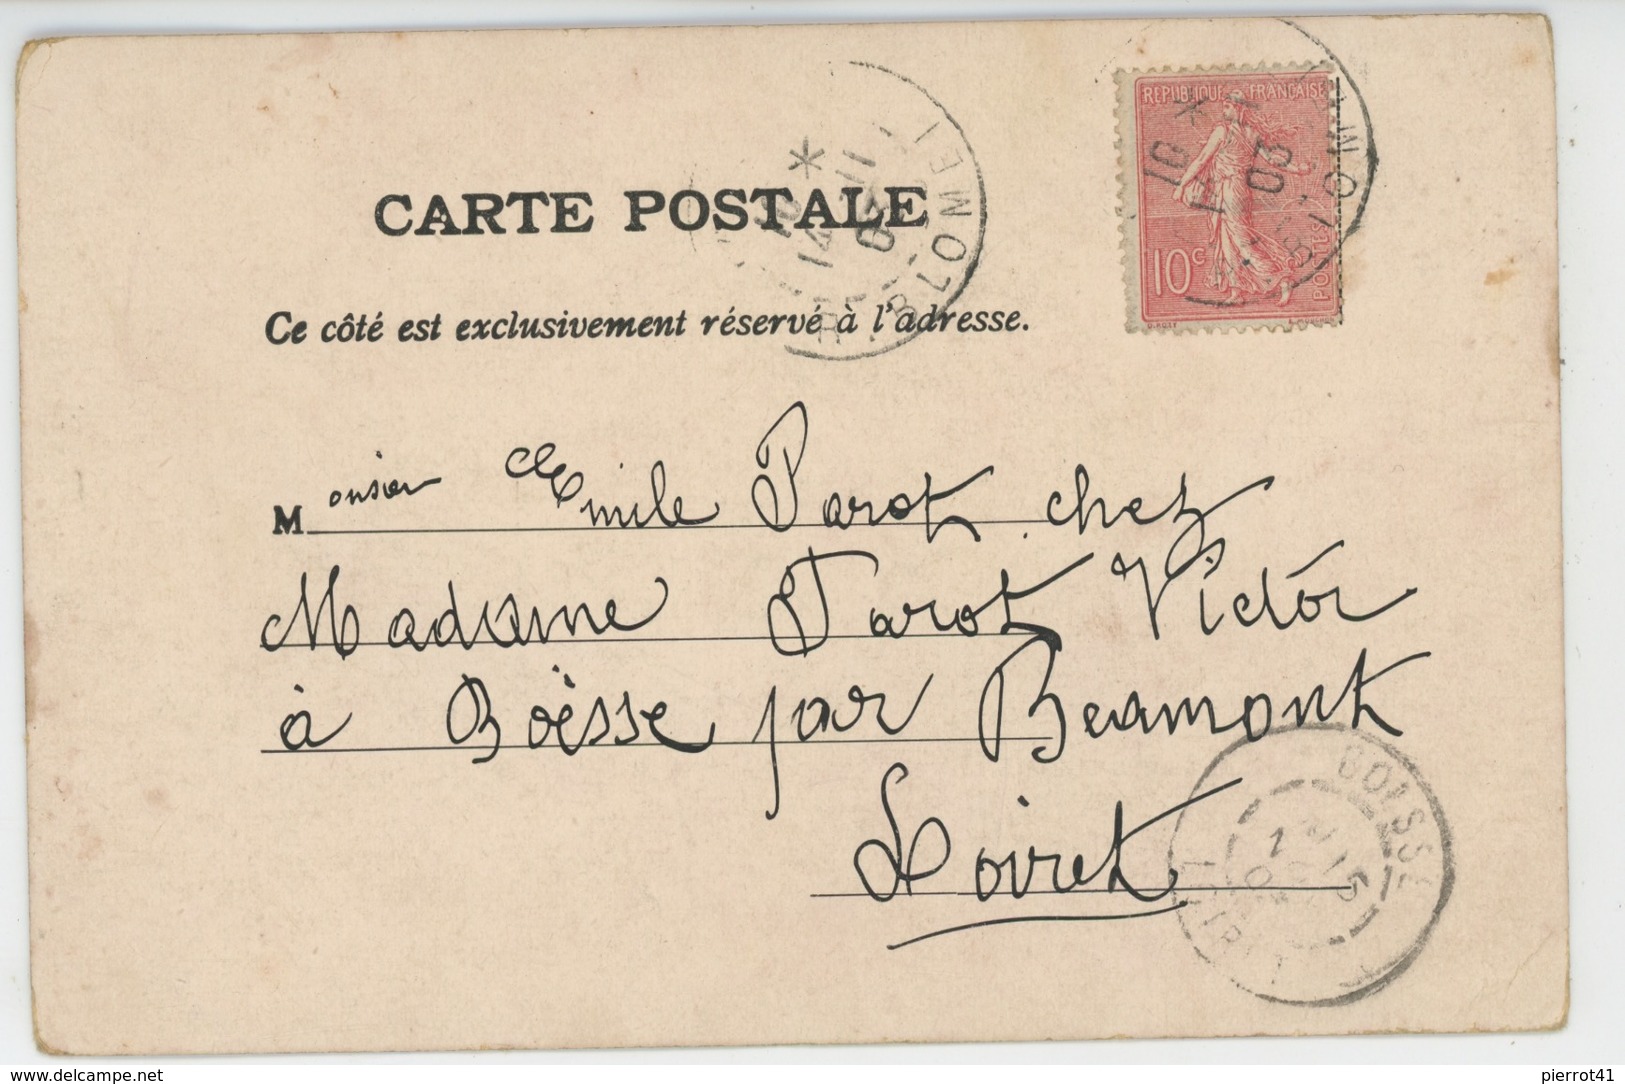 REPUBLIQUE FRANÇAISE
10c
POSTES
CARTE POSTALE
Ce côté est exclusivement réservé à l'adresse.
Monsieur Emile Parot chez
Madame Parot Victor
à Boësse par Beaumont
Loiret
BOISSE
www.delcampe.net
pierrot41